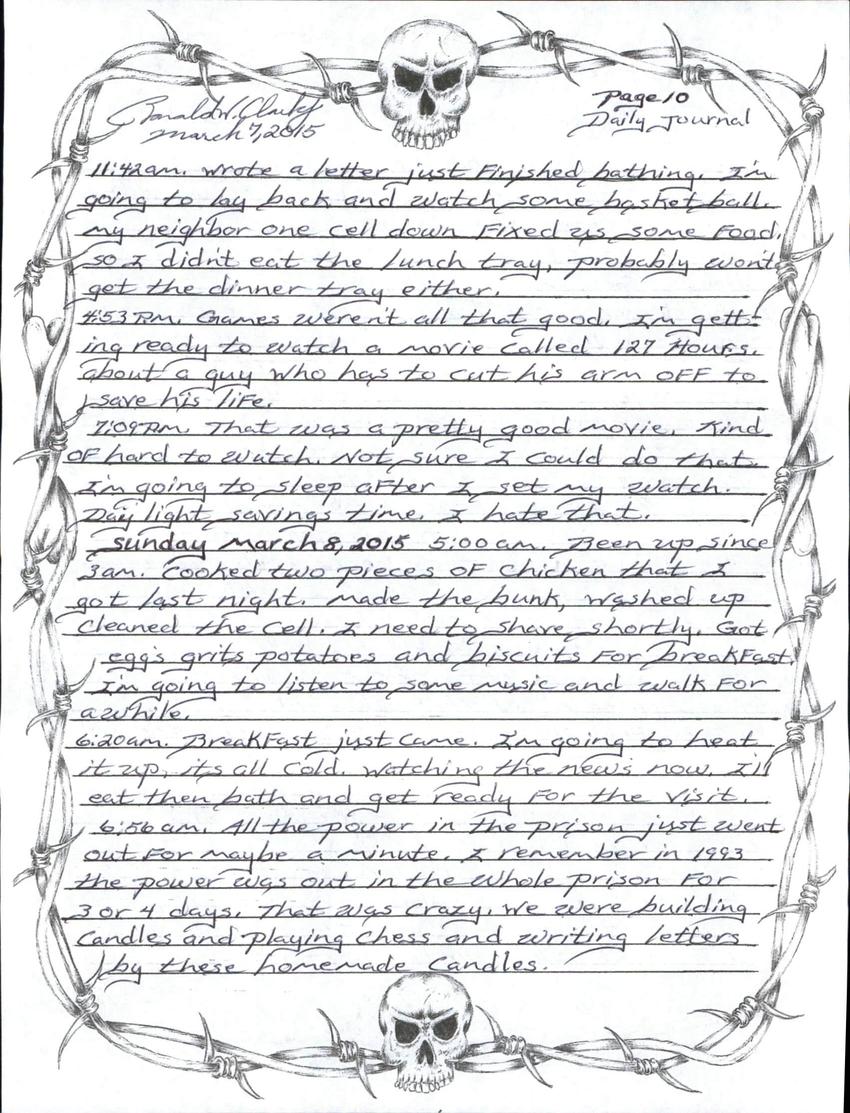 Ronald W. Clark Jr
March 7, 2015
Page 10
Daily Journal
11:42am. wrote a letter just Finished bathing. I'm
going to lay back and watch some basket ball.
my neighbor one cell down Fixed us some Food,
so I didn't eat the lunch tray, probably won't
get the dinner tray either.
4:53 P.m. Games weren't all that good. I'm gett-
ing ready to watch a movie called 127 Hours.
about a guy who has to cut his arm OFF to
save his life.
7:09 P.m. That was a pretty good movie. Kind
OF hard to watch. Not sure I could do that.
I'm going to sleep after I set my watch.
Day light savings time. I hate that.
Sunday March 8, 2015 5:00am. Been up since
3am. Cooked two pieces OF chicken that I
got last night. Made the bunk, washed up
cleaned the cell. I need to shave shortly. Got
eggs grits potatoes and biscuits For breakFast.
I'm going to listen to some music and walk For
awhile.
6:20am. BreakFast just came. I'm going to heat
it up, its all cold. Watching the news now. I'll
eat then bath and get ready For the visit.
6:56 am. All the power in the prison just went
out For maybe a minute. I remember in 1993
the power was out in the whole prison For
3 or 4 days. That was crazy. We were building
candles and playing chess and writing letters
by these homemade candles.